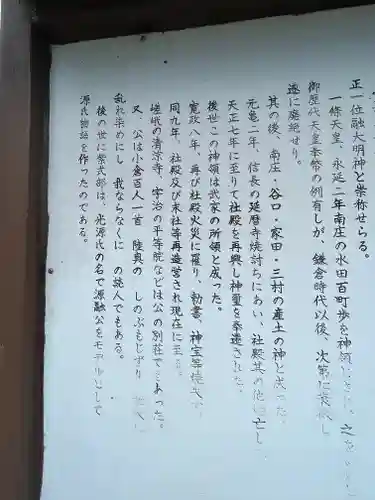 正一位融大明神と崇称せらる。
一條天皇、永延二年南庄の水田百町歩を神領
御歴代天皇奉幣の例有しが、鎌倉時代以後、次第に衰微し
遂に廃絶せり。
其の後、南庄・谷口・家田・三村の産土の神と成った。
元亀二年、信長の延暦寺焼討ちにあい、社殿其の他亡し
天正七年に至りて社殿を再興し神璽を奉遷された。
後世この神領は武家の所領と成った。
寛政八年、再び社殿火災に罹り、勅書、神宝等焼
同九年、社殿及び末社等再造営され現在に至る
嵯峨の清涼寺、宇治の平等院などは公の別荘であった。
又、公は小倉百人一首 陸奥の しのぶもじずり
乱れ染めにし 我ならなくに の詠人でもある。
後の世に紫式部は、光源氏の名で源融公をモデルとして
源氏物語を作ったのである。